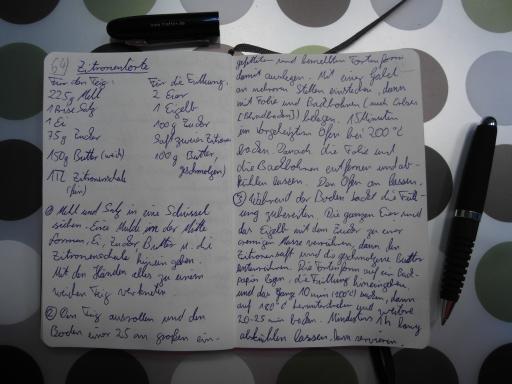 64 Zitronentorte
Für den Teig:
225g Mehl
1 Prise Salz
1 Ei
75g Zucker
150g Butter (weich)
1TL Zitronenschale
(fein)
Für die Füllung:
2 Eier
1 Eigelb
100g Zucker
Saft zweier Zitronen
100g Butter,
geschmolzen)
① Mehl und Salz in eine Schüssel
sieben. Eine Mulde in der Mitte
formen, Ei, Zucker Butter u. die
Zitronenschale hinein geben.
Mit den Händen alles zu einem
weichen Teig verkneten
② Den Teig ausrollen und den
Boden einer 25 cm großen ein-
gefetteten und bemehlten Tortenform
damit auslegen. Mit einer Gabel
an mehreren Stellen einstechen, dann
mit Folie und Backbohnen (auch Erbsen
[Blindbacken]) belegen. 15 Minuten
im vorgeheizten Ofen bei 200°C
backen. Danach die Folie und
die Backbohnen entfernen und ab-
kühlen lassen. Den Ofen an lassen.
③ Während der Boden backt die Füll-
ung zubereiten. Die ganzen Eier und
das Eigelb mit dem Zucker zu einer
cremigen Masse verrühren, dann den
Zitronensaft und die geschmolzene Butter
unterrühren. Die Tortenform auf ein Back-
papier legen, die Füllung hineingeben
und das Ganze 10 min (200°C) backen, dann
auf 180°C herunterschalten und weitere
20-25 min backen. Mindestens 1h lang
abkühlen lassen, dann servieren.